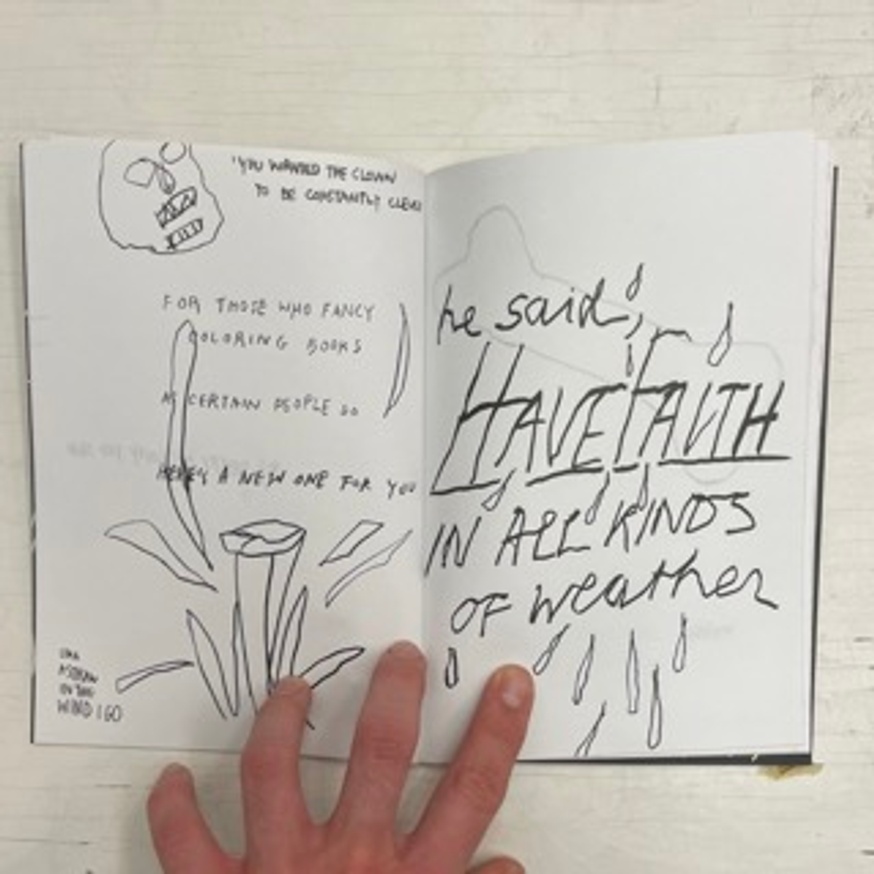 'YOU WANTED THE CLOWN
TO BE CONSTANTLY CLEVER
FOR THOSE WHO FANCY
COLORING BOOKS
AS CERTAIN PEOPLE DO
HERE'S A NEW ONE FOR YOU
LIKE
A STRAW
IN THE
WIND I GO
he said,
HAVE FAITH
IN ALL KINDS
OF weather